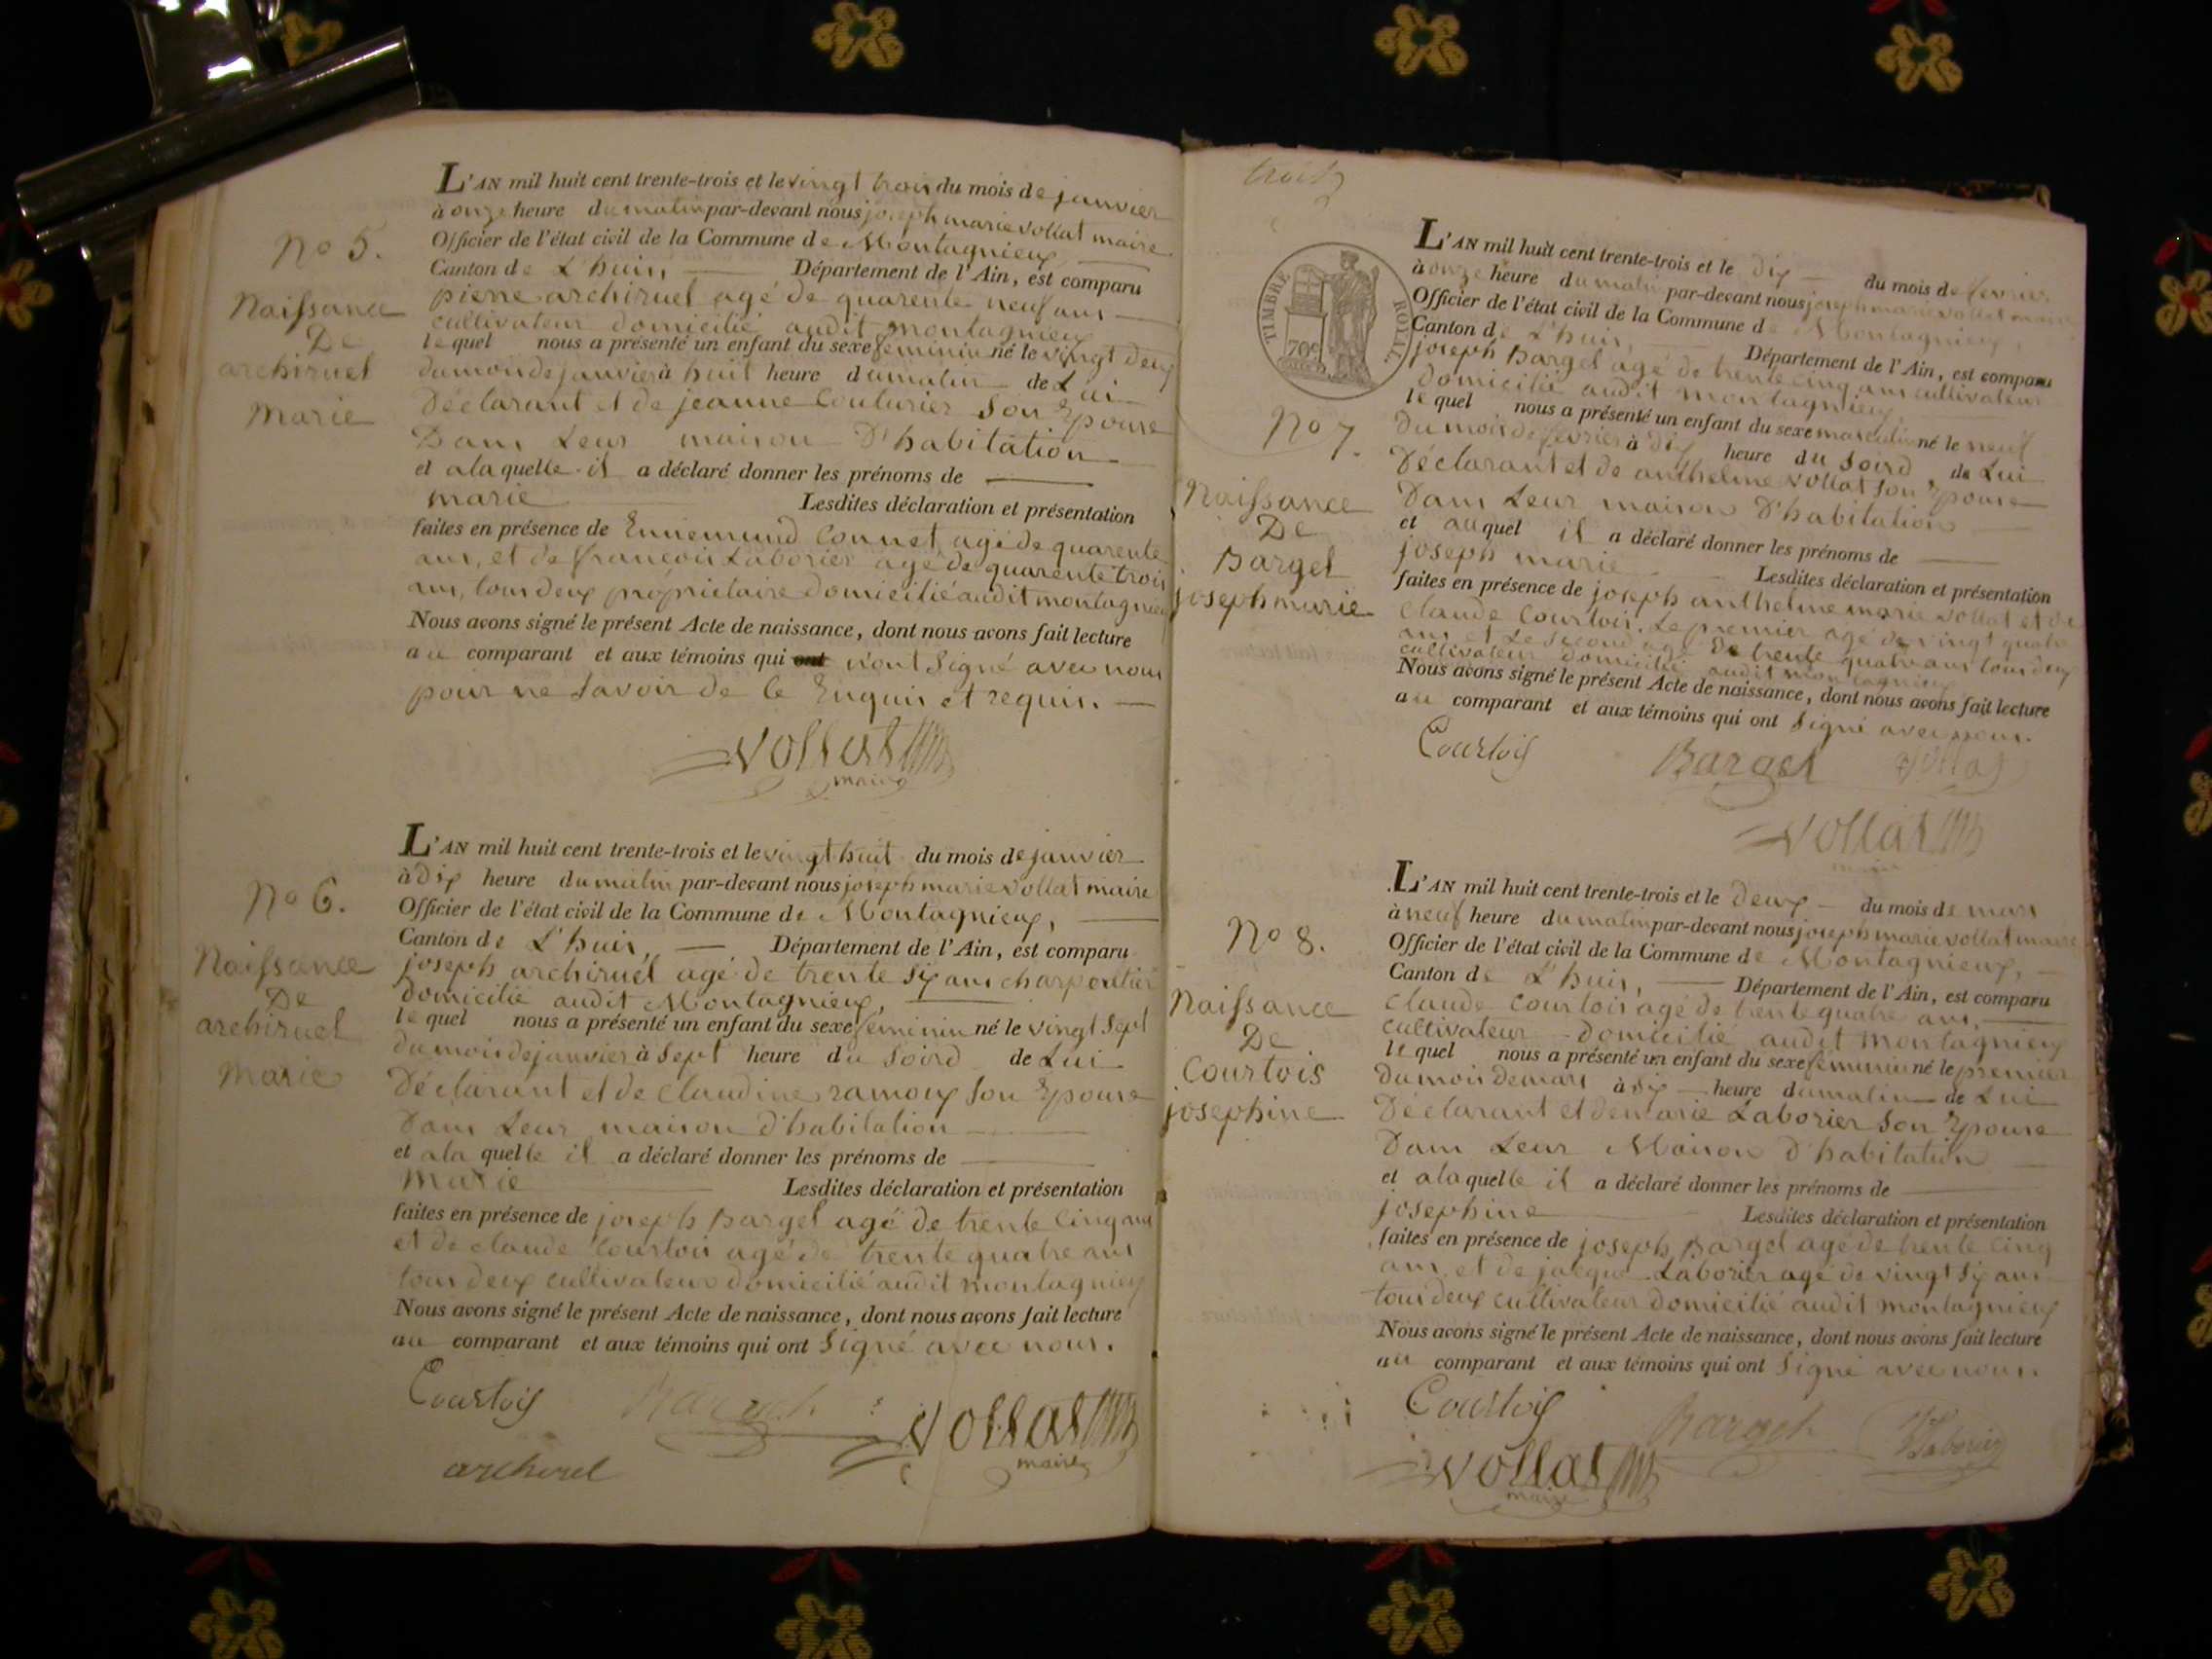 N° 5.
Naissance
De
archiruel
Marie
L'AN mil huit cent trente-trois et le vingt trois du mois de janvier
à onze heure du matin par-devant nous joseph marie vollat maire
Officier de l'état civil de la Commune de Montagnieux
Canton de L'huis, Département de l'Ain, est comparu
pierre archiruel agé de quarente neuf ans
cultivateur domicilié audit montagnieux
lequel nous a présenté un enfant du sexe feminin né le vingt deux
du mois de janvier à huit heure du matin de Lui
Déclarant et de jeanne Couturier Son Epouse
Dans Leur maison D'habitation
et a laquelle il a déclaré donner les prénoms de
marie Lesdites déclaration et présentation
faites en présence de Ennemund Connet agé de quarente
ans, et de françois Laborier agé de quarente trois
ans, tous deux propriétaire domicilié audit montagnieux
Nous avons signé le présent Acte de naissance, dont nous avons fait lecture
au comparant et aux témoins qui ont n'ont Signé avec nous
pour ne Savoir de ce Enquis et requis.
Vollat
maire
N° 6.
Naissance
De
archiruel
Marie
L'AN mil huit cent trente-trois et le vingt huit du mois de janvier
à dix heure du matin par-devant nous joseph marie vollat maire
Officier de l'état civil de la Commune de Montagnieux,
Canton de L'huis, Département de l'Ain, est comparu
joseph archiruel agé de trente six ans charpentier
domicilié audit Montagnieux,
lequel nous a présenté un enfant du sexe feminin né le vingt Sept
du mois de janvier à Sept heure du Soird de Lui
Déclarant et de Claudine ramoux Son Epouse
Dans Leur maison d'habitation
et a la quelle il a déclaré donner les prénoms de
Marie Lesdites déclaration et présentation
faites en présence de joseph Bargel agé de trente Cinq ans
et de claude Courtois agé de trente quatre ans
tous deux cultivateur domicilié audit montagnieux
Nous avons signé le présent Acte de naissance, dont nous avons fait lecture
au comparant et aux témoins qui ont Signé avec nous.
Courtois
Vollat
maire
archirel
trois
TIMBRE ROYAL
70c
N° 7.
Naissance
De
Bargel
joseph marie
L'AN mil huit cent trente-trois et le dix du mois de fevrier
à onze heure du matin par-devant nous joseph marie vollat maire
Officier de l'état civil de la Commune de Montagnieux,
Canton de L'huis, Département de l'Ain, est comparu
joseph Bargel agé de trente cinq ans cultivateur
domicilié audit montagnieux
lequel nous a présenté un enfant du sexe masculin né le neuf
du mois de fevrier à dix heure du Soird, de Lui
Déclarant et de anthelme vollat Son Epouse
Dans Leur maison D'habitation
et auquel il a déclaré donner les prénoms de
joseph marie Lesdites déclaration et présentation
faites en présence de joseph anthelme marie vollat et de
Claude Courtois. Le premier agé de vingt quatre
ans et Le Second agé De trente quatre ans tous deux
cultivateur domicilié audit montagnieux
Nous avons signé le présent Acte de naissance, dont nous avons fait lecture
au comparant et aux témoins qui ont Signé avec nous.
Courtois Bargel Vollat
Vollat
maire
N° 8.
Naissance
De
Courtois
josephine
L'AN mil huit cent trente-trois et le Deux du mois de mars
à neuf heure du matin par-devant nous joseph marie vollat maire
Officier de l'état civil de la Commune de Montagnieux,
Canton de L'huis, Département de l'Ain, est comparu
Claude Courtois agé de trente quatre ans,
cultivateur domicilié audit montagnieux
lequel nous a présenté un enfant du sexe feminin né le premier
du mois de mars à six heure du matin de Lui
Déclarant et de marie Laborier Son Epouse
Dans Leur Maison d'habitation
et a laquelle il a déclaré donner les prénoms de
josephine Lesdites déclaration et présentation
faites en présence de joseph Bargel agé de trente Cinq
ans, et de jacque Laborier agé de vingt Six ans
tous deux cultivateur domicilié audit montagnieux
Nous avons signé le présent Acte de naissance, dont nous avons fait lecture
au comparant et aux témoins qui ont Signé avec nous.
Courtois
Vollat
maire